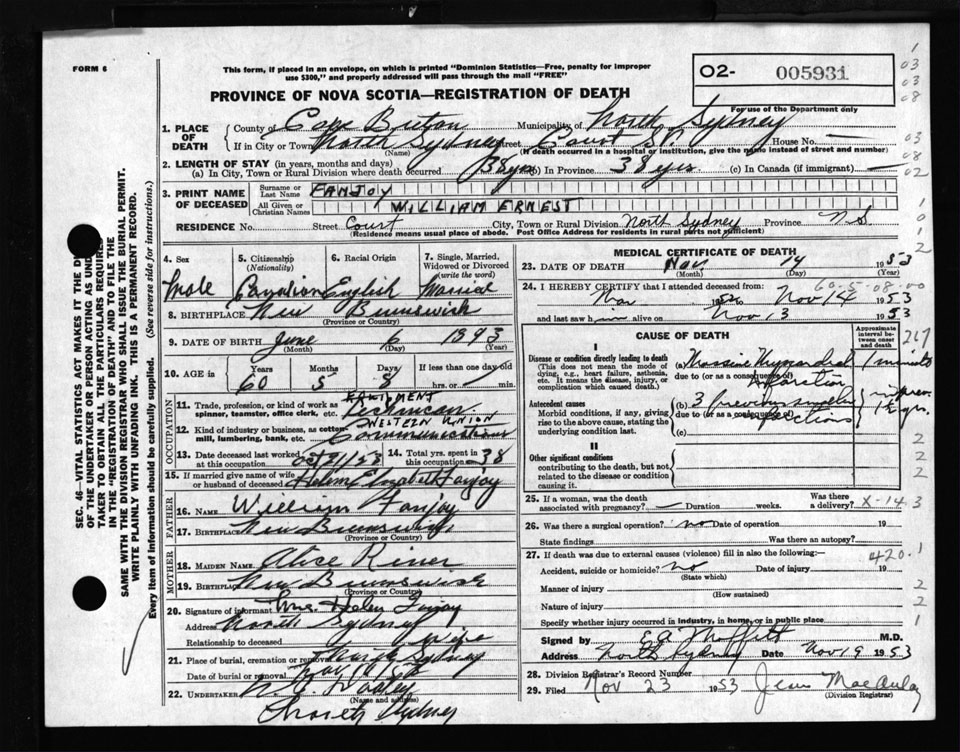 FORM 6
This form, if placed in an envelope, on which is printed "Dominion Statistics—Free, penalty for improper
use $300," and properly addressed will pass through the mail "FREE"
02- 005931
For use of the Department only
PROVINCE OF NOVA SCOTIA—REGISTRATION OF DEATH
1. PLACE OF DEATH
County of Cape Breton Municipality of North Sydney
If in City or Town North Sydney Street Court St House No. —
(Name) (If death occurred in a hospital or institution, give the name instead of street and number)
2. LENGTH OF STAY (in years, months and days)
(a) In City, Town or Rural Division where death occurred 38 yrs (b) In Province 38 yrs. (c) In Canada (if immigrant) —
3. PRINT NAME OF DECEASED
Surname or Last Name FANJOY
All Given or Christian Names WILLIAM ERNEST
RESIDENCE No. Street Court City, Town or Rural Division North Sydney Province N.S.
(Residence means usual place of abode. Post Office Address for residents in rural parts not sufficient)
4. Sex 5. Citizenship (Nationality) 6. Racial Origin 7. Single, Married, Widowed or Divorced (write the word)
Male Canadian English Married
8. BIRTHPLACE New Brunswick
(Province or Country)
9. DATE OF BIRTH June 6 1893
(Month) (Day) (Year)
10. AGE in Years Months Days If less than one day old
60 5 8 hrs. or min.
OCCUPATION
11. Trade, profession, or kind of work as spinner, teamster, office clerk, etc. EQUIPMENT Technician
12. Kind of industry or business, as cotton-mill, lumbering, bank, etc. WESTERN UNION Communications
13. Date deceased last worked at this occupation Oct 21/53 14. Total yrs. spent in this occupation 38
15. If married give name of wife or husband of deceased Helen Elizabeth Fanjoy
FATHER
16. NAME William Fanjoy
17. BIRTHPLACE New Brunswick
(Province or Country)
MOTHER
18. MAIDEN NAME Alice
19. BIRTHPLACE New Brunswick
(Province or Country)
20. Signature of informant Mrs. Helen Fanjoy
Address North Sydney
Relationship to deceased wife
21. Place of burial, cremation or removal North Sydney
Date of burial or removal
22. UNDERTAKER
(Name and address)
North Sydney
MEDICAL CERTIFICATE OF DEATH
23. DATE OF DEATH Nov 14 1953
(Month) (Day) (Year)
60-5-08-00
24. I HEREBY CERTIFY that I attended deceased from:
Nov Nov 14 1953
and last saw him alive on Nov 13 1953
CAUSE OF DEATH
Approximate interval between onset and death
I
Disease or condition directly leading to death (This does not mean the mode of dying, e.g., heart failure, asthenia, etc. It means the disease, injury, or complication which caused death.)
(a) Massive Myocardial Infarction 1 minute
due to (or as a consequence of)
Antecedent causes
Morbid conditions, if any, giving rise to the above cause, stating the underlying condition last.
(b) 3 previous smaller
due to (or as a consequence of)
(c)
II
Other significant conditions
contributing to the death, but not related to the disease or condition causing it
25. If a woman, was the death associated with pregnancy? — Duration weeks. Was there a delivery? X-14 3
26. Was there a surgical operation? no Date of operation 19
State findings Was there an autopsy?
27. If death was due to external causes (violence) fill in also the following:— 420.1
Accident, suicide or homicide? no Date of injury 19
(State which)
Manner of injury
(How sustained)
Nature of injury
Specify whether injury occurred in industry, in home, or in public place
Signed by E A Moffitt M.D.
Address North Sydney Date Nov 19 1953
28. Division Registrar's Record Number
29. Filed Nov 23 1953 Jean MacAulay
(Division Registrar)
SEC. 46—VITAL STATISTICS ACT MAKES IT THE
OF THE UNDERTAKER OR PERSON ACTING AS
TAKER TO OBTAIN ALL THE PARTICULARS REQUIRED
IN THE "REGISTRATION OF DEATH" AND TO FILE THE
SAME WITH THE DIVISION REGISTRAR WHO SHALL ISSUE THE BURIAL PERMIT.
WRITE PLAINLY WITH UNFADING INK. THIS IS A PERMANENT RECORD.
Every item of information should be carefully supplied. (See reverse side for instructions.)